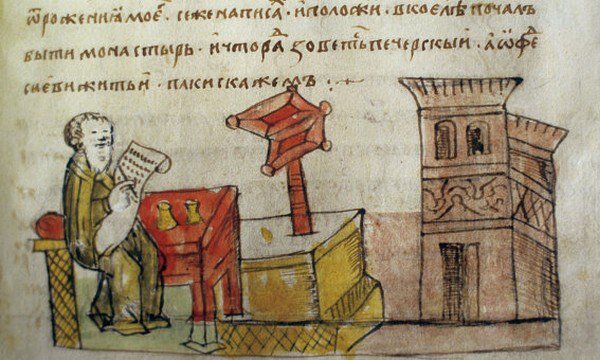 ѿроженїꙗ моеⷢ · сеженаписаⷯ · иположиⷯ · вкоелѣⷮ почалъ
быти монастырь · ичтораⷣ зоветьⷭ печерскыи · аѿфеѡⷣ
сиевижитьи · пакискажемъ ·